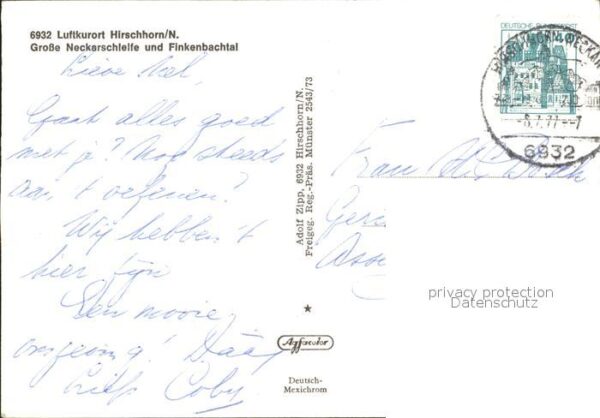 6932 Luftkurort Hirschhorn/N.
Große Neckarschleife und Finkenbachtal
Lieve Nel,
Gaat alles goed
met je? Nog steeds
aan 't oefenen?
Wij hebben 't
hier fijn
Een mooie
omgeving! Dáág
Liefs Coby
Adolf Zipp, 6932 Hirschhorn/N.
Freigeg. Reg.-Präs. Münster 2543/73
Agfacolor
Deutsch-
Mexichrom
DEUTSCHE BUNDESPOST
40
6932
Frau
privacy protection
Datenschutz